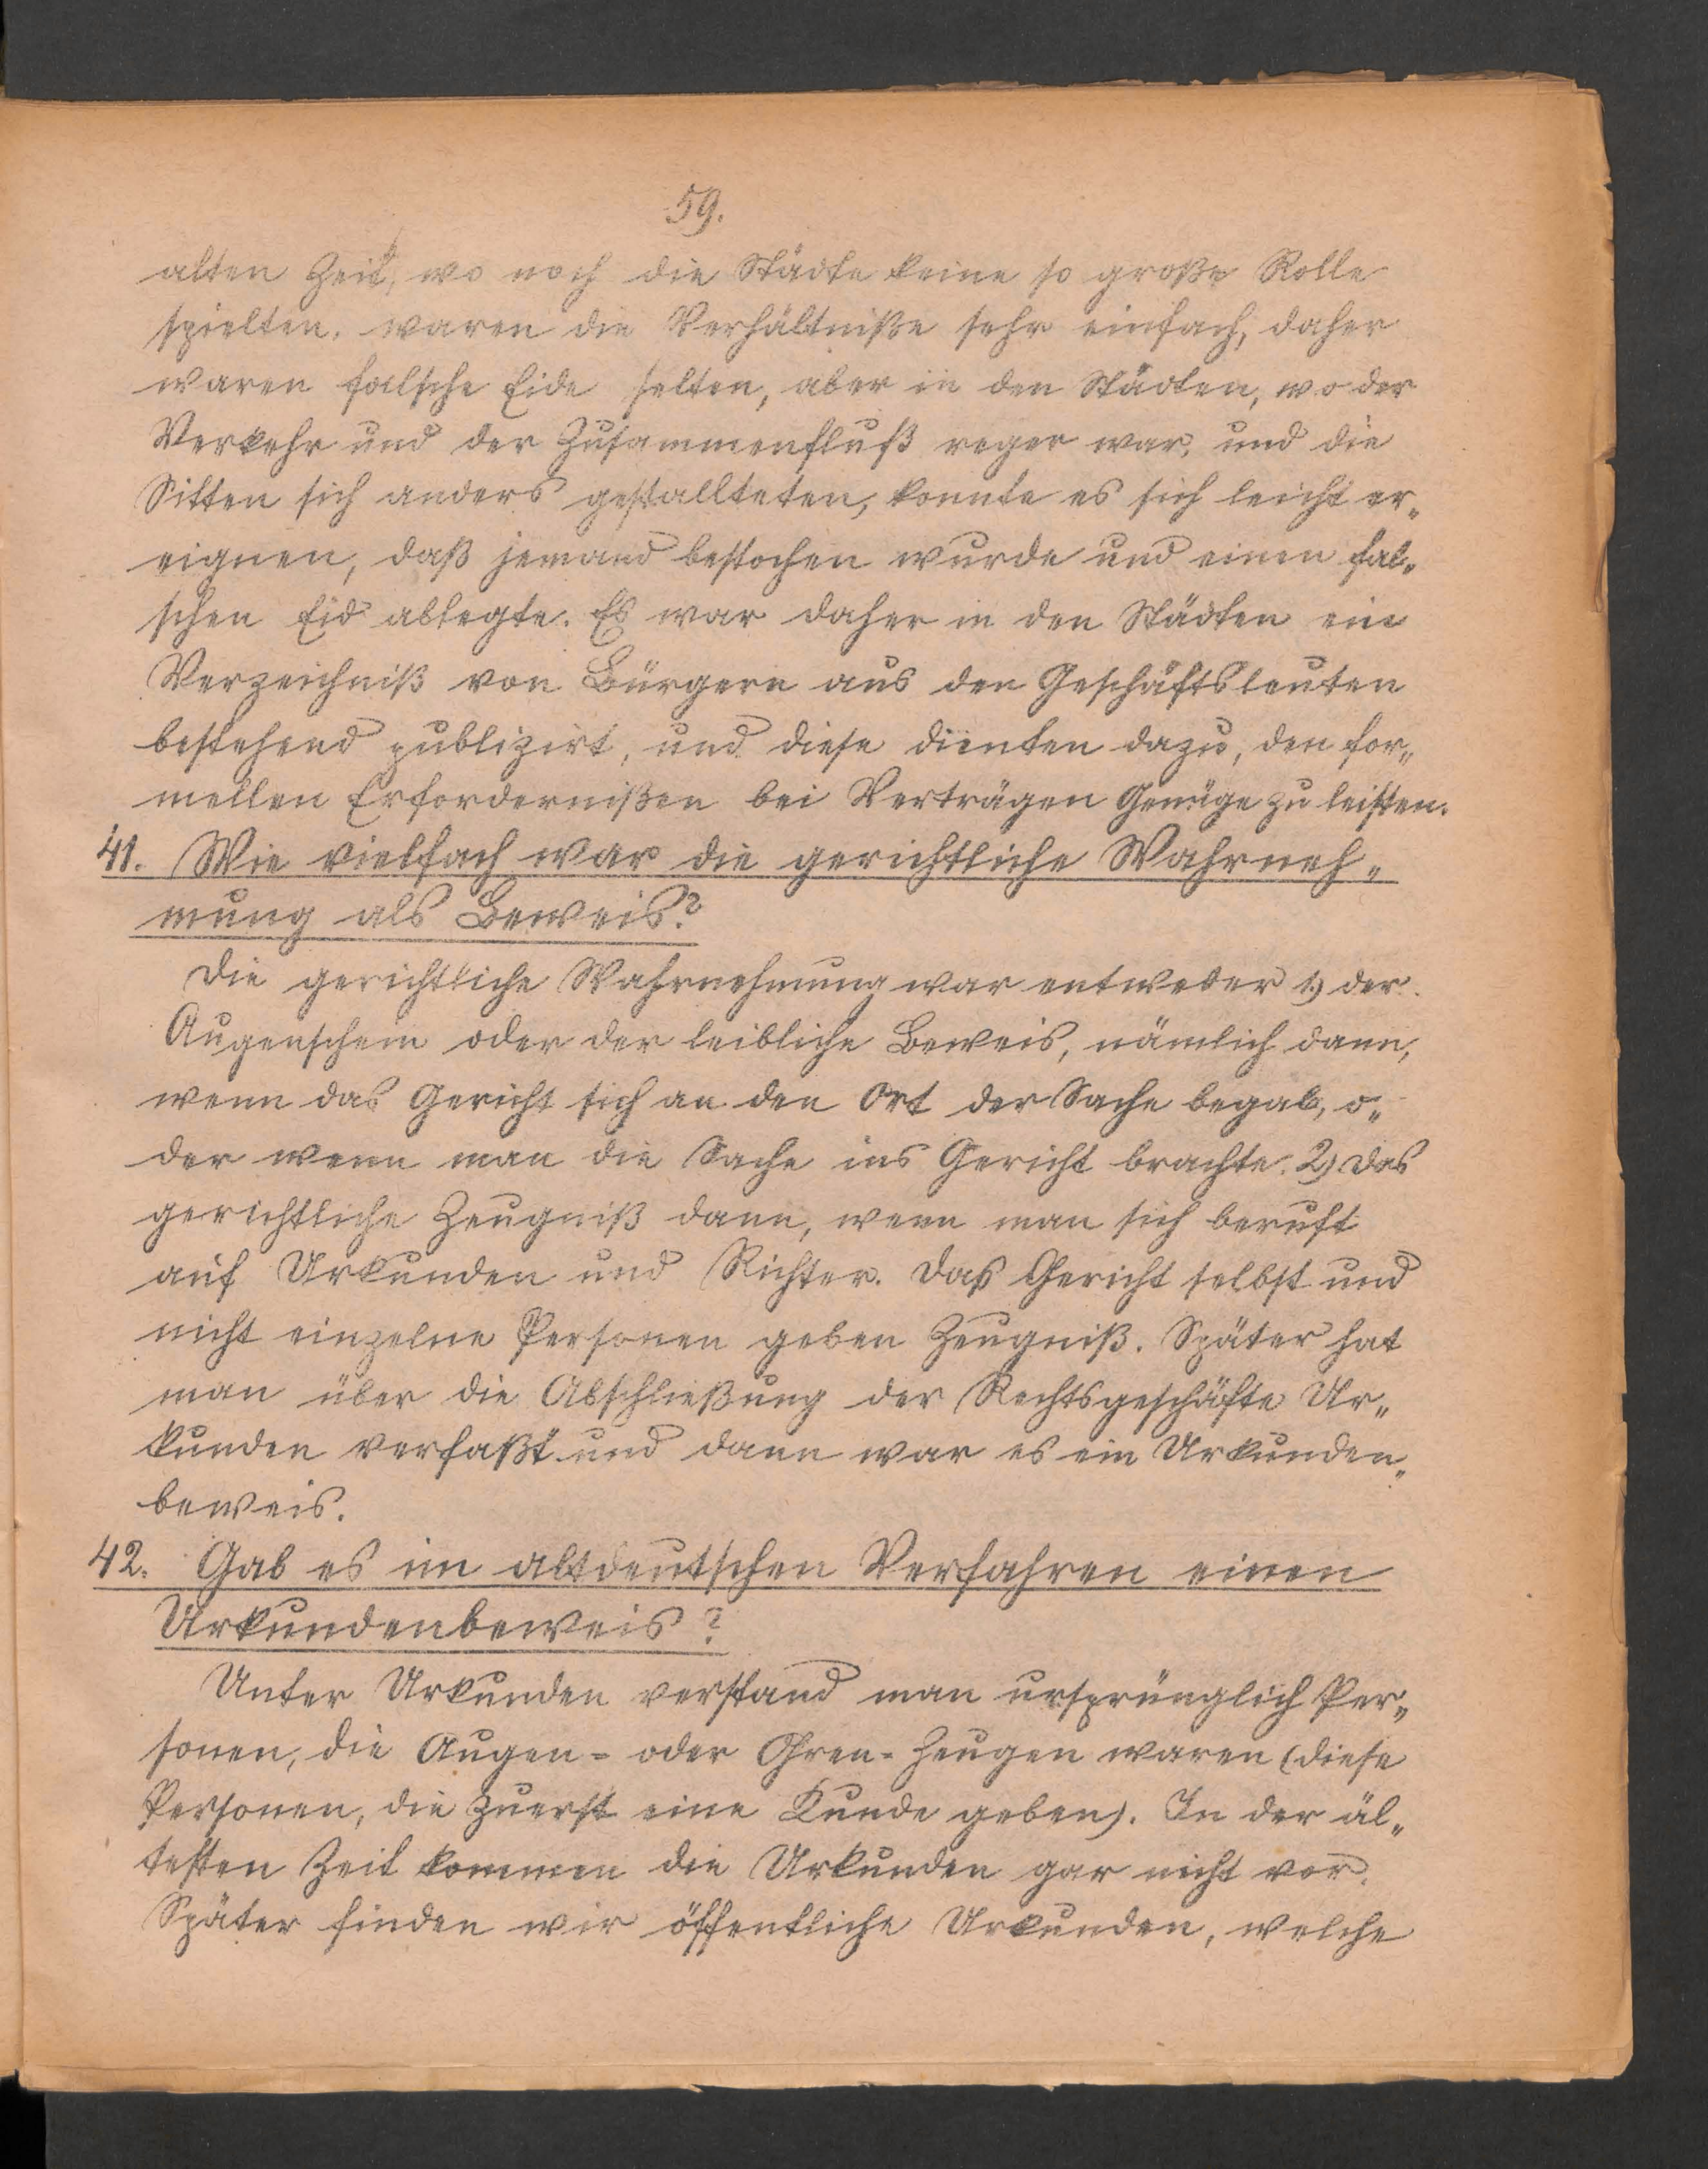 59.
alten Zeit, wo noch die Städte keine so große Rolle
spielten, waren die Verhältniße sehr einfach, daher
waren falsche Eide selten, aber in den Städten, wo der
Verkehr und der Zusammenfluß reger war, und die
Sitten sich anders gestallteten, konnte es sich leicht er„
eignen, daß jemand bestochen wurde und einen fal„
schen Eid ablegte. Es war daher in den Städten ein
Verzeichniß von Bürgern aus den Geschäftsleuten
bestehend publizirt, und diese dienten dazu, den for„
mellen Erfordernißen bei Verträgen Genüge zu leisten.
41. Wie vielfach war die gerichtliche Wahrneh„
mung als Beweis?
Die gerichtliche Wahrnehmung war entweder 1) der
Augenschein oder der leibliche Beweis, nämlich dann,
wenn das Gericht sich an den Ort der Sache begab, o„
der wenn man die Sache ins Gericht brachte. 2) das
gerichtliche Zeugniß dann, wenn man sich beruft
auf Urkunden und Richter. Das Gericht selbst und
nicht einzelne Personen geben Zeugniß. Später hat
man über die Abschließung der Rechtsgeschäfte Ur„
kunden verfaßt und dann war es ein Urkunden„
beweis.
42. Gab es im altdeutschen Verfahren einen
Urkundenbeweis?
Unter Urkunden verstand man ursprünglich Per„
sonen, die Augen= oder Ohren=Zeugen waren (diese
Personen, die zuerst eine Kunde geben). In der äl„
testen Zeit kommen die Urkunden gar nicht vor.
Später finden wir öffentliche Urkunden, welche